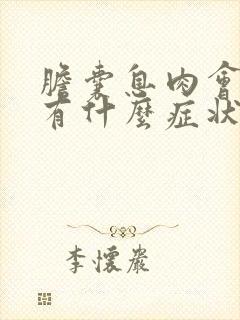 膽囊息肉會
有什麼症狀
李懷嚴